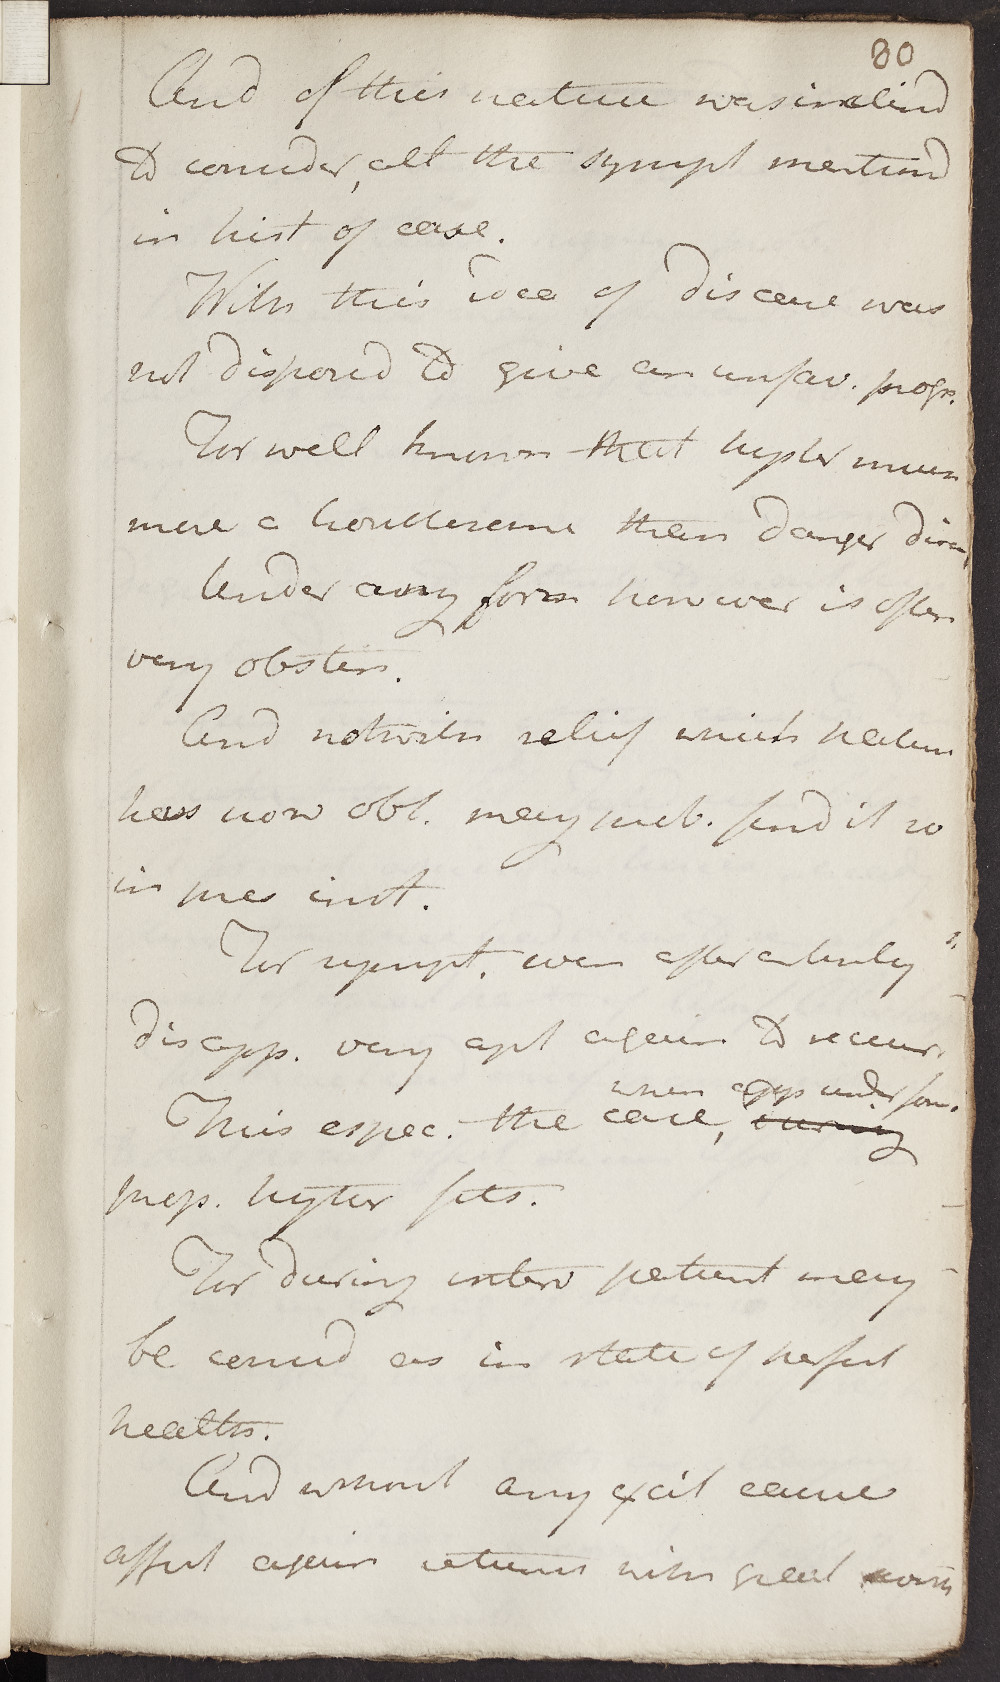 80
And of this nature was inclind
to consider, all the sympt mentiond
in hist of case.
With this idea of disease was
not disposed to give an unfav. progn.
For well known that hyster
more a troublesome than danger disea
Under any form however is often
very obstin.
And notwith relief which nature
has now obt. may prob. find it so
in pres inst.
For sympt. even after entirely
disapp. very apt again to recur.
when app under form
This espec. the case, during
prop. hyster fits.
For during interv patient may
be consid as in state of perfect
health.
And without any excit cause
affect again returns with great